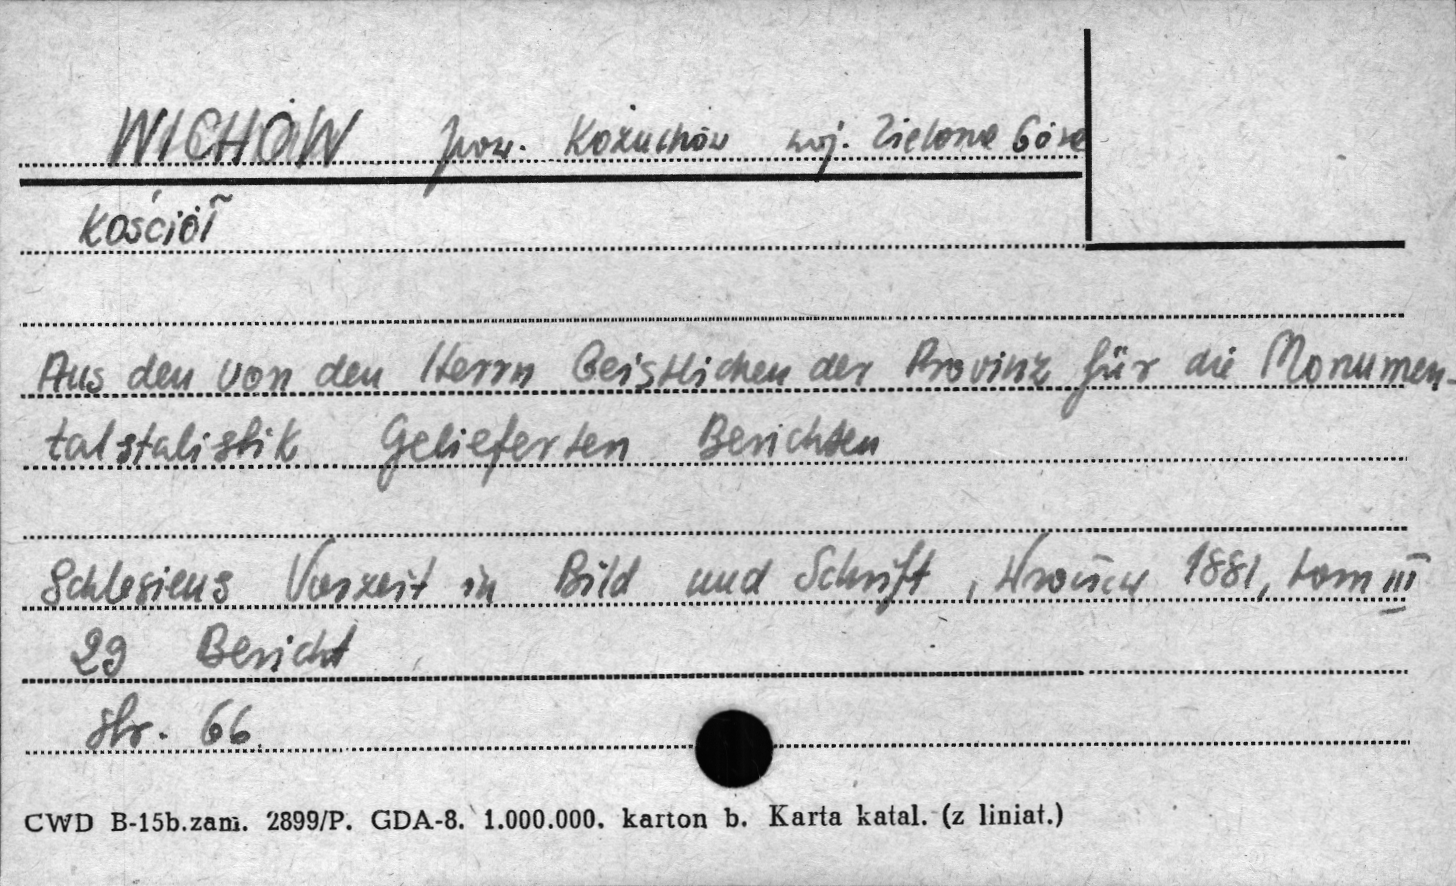 WICHÓW pow. Kożuchów woj. Zielona Góra
kościół
Aus den von den Herrn Geistlichen der Provinz für die Monumen-
talstatistik Gelieferten Berichten
Schlesiens Vorzeit in Bild und Schrift, Wrocław 1881, tom III
29 Bericht
str. 66.
CWD B-15b.zam. 2899/P. GDA-8. 1.000.000. karton b. Karta katal. (z liniat.)